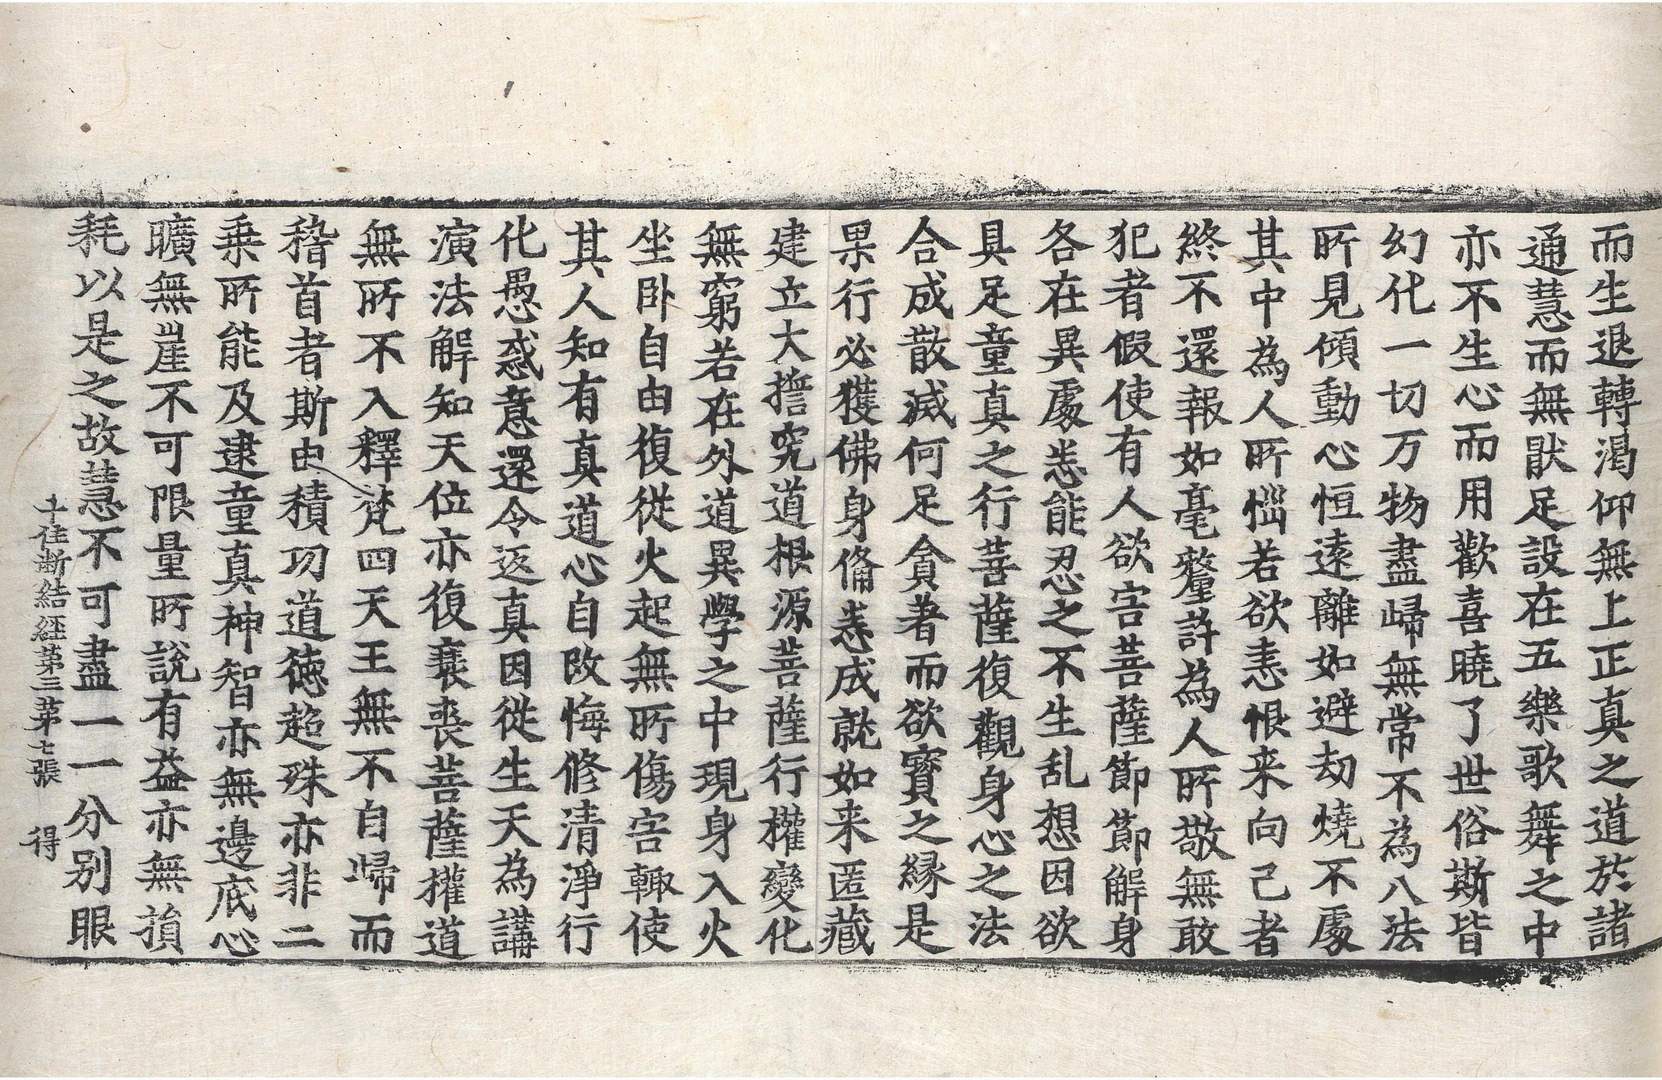 而生退轉渴仰無上正真之道於諸
通慧而無猒足設在五樂歌舞之中
亦不生心而用歡喜曉了世俗斯皆
幻化一切万物盡歸無常不為八法
所見傾動心恒遠離如避劫燒不處
其中為人所惱若欲恚恨来向己者
終不還報如毫釐許為人所敬無敢
犯者假使有人欲害菩薩節節解身
各在異處悉能忍之不生乱想因欲
具足童真之行菩薩復觀身心之法
合成散滅何足貪著而欲寳之縁是
果行必獲佛身俻悉成就如来匿藏
建立大擔究道根源菩薩行權變化
無窮若在外道異學之中現身入火
坐卧自由復從火起無所傷害輙使
其人知有真道心自改悔修清淨行
化愚惑意還令返真因從生天為講
演法解知天位亦復衰喪菩薩權道
無所不入釋梵四天王無不自歸而
稽首者斯由積功道德超殊亦非二
乗所能及逮童真神智亦無邊底心
曠無崖不可限量所說有益亦無損
耗以是之故慧不可盡一一分别眼
十住断結経第三第七張 得